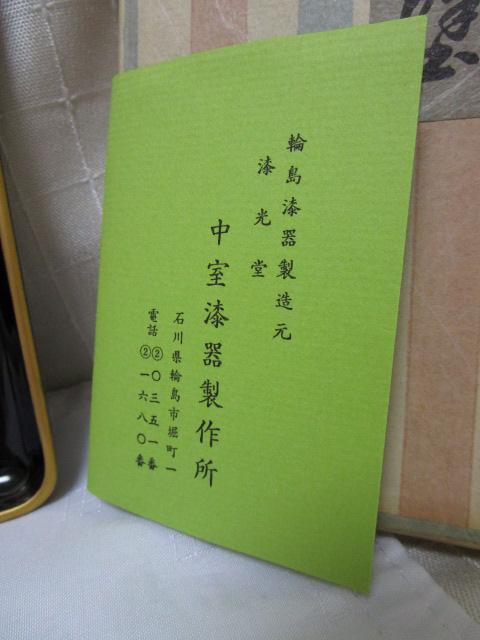 輪島漆器製造元
漆光堂
中室漆器製作所
石川県輪島市堀町一
電話②〇三五一番
②一六八〇番